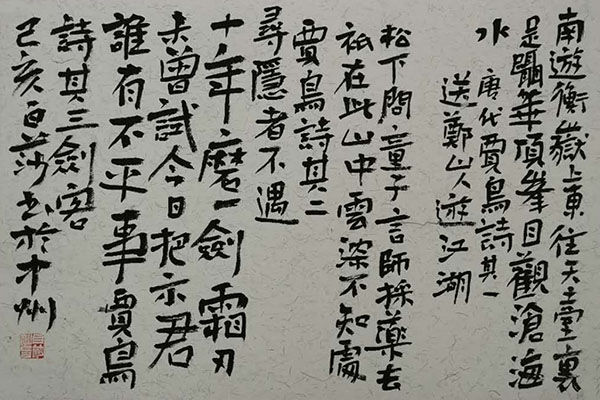 南遊衡嶽上東往天臺裏
足躡華頂峯目觀滄海
水 唐代賈島詩其一
送鄭山人遊江湖
松下問童子言師採藥去
祇在此山中雲深不知處
賈島詩其二
尋隱者不遇
十年磨一劍霜刃
未曾試今日把示君
誰有不平事賈島
詩其三劍客
己亥百莎書於中州